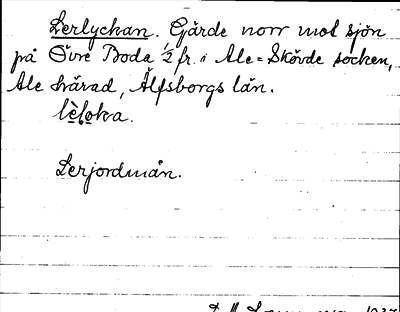 Lerlyckan. Gärde norr mot sjön
på Övre Boda ½ fr. i Ale-Skövde socken,
Ale härad, Älfsborgs län.
lèloka.
Lerjordmån.
1937